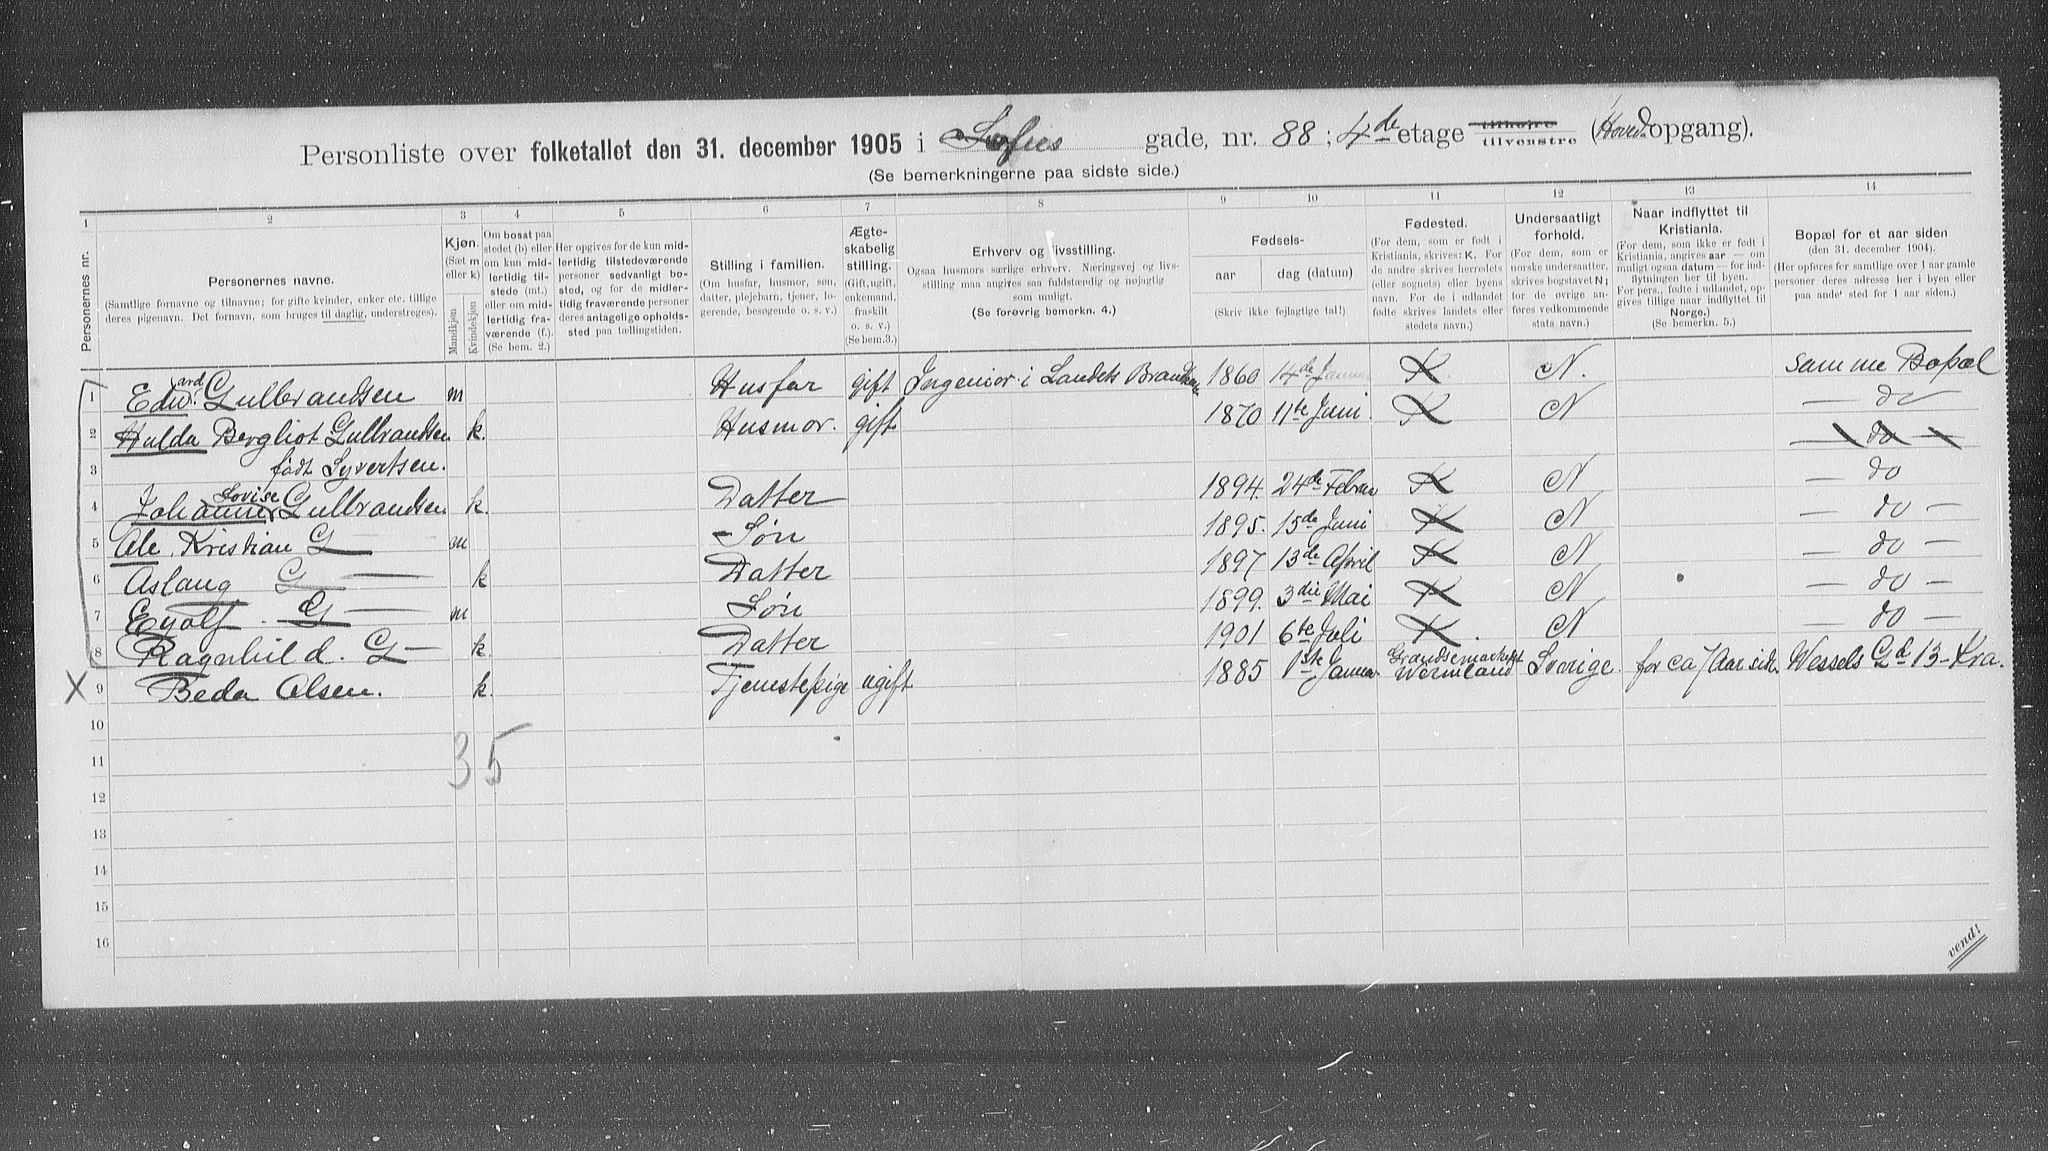 Personliste over folketallet den 31. december 1905 i Sofies gade, nr. 88; 4de etage tilhøjre tilvenstre (Hoved opgang).
(Se bemerkningerne paa sidste side.)
1 2 3 4 5 6 7 8 9 10 11 12 13 14
Personernes nr.
Personernes navne.
(Samtlige fornavne og tilnavne; for gifte kvinder, enker etc. tillige
deres pigenavn. Det fornavn, som bruges til daglig, understreges).
Kjøn.
(Sæt m
eller k)
Mandkjøn
Kvindekjøn
Om bosat paa
stedet (b) eller
om kun mid-
lertidig til-
stede (mt.)
eller om mid-
lertidig fra-
værende (f.)
(Se bem. 2.)
Her opgives for de kun mid-
lertidig tilstedeværende
personer sedvanligt bo-
sted, og for de midler-
tidig fraværende personer
deres antagelige opholds-
sted paa tællingstiden.
Stilling i familien.
(Om husfar, husmor, søn,
datter, plejebarn, tjener, lo-
gerende, besøgende o. s. v.)
Ægte-
skabelig
stilling.
(Gift, ugift,
enkemand,
fraskilt
o. s. v.)
(Se bem.3.)
Erhverv og livsstilling.
Ogsaa husmors særlige erhverv. Næringsvej og livs-
stilling maa angives saa fuldstændig og nøjagtig
som muligt.
(Se forøvrig bemerkn. 4.)
Fødsels-
aar dag (datum)
(Skriv ikke fejlagtige tal!)
Fødested.
(For dem, som er født i
Kristiania, skrives: K. For
de andre skrives herredets
(eller sognets) eller byens
navn. For de i udlandet
fødte skrives landets eller
stedets navn.)
Undersaatligt
forhold.
(For dem, som er
norske undersaatter,
skrives bogstavet N;
for de øvrige an-
føres vedkommende
stats navn.)
Naar indflyttet til
Kristiania.
(For dem, som ikke er født i
Kristiania, angives aar — om
muligt ogsaa datum — for ind-
flytningen her til byen.
For pers., fødte i udlandet, op-
gives tillige naar indflyttet til
Norge.)
(Se bemerkn. 5.)
Bopæl for et aar siden
(den 31. december 1904).
(Her opføres for samtlige over 1 aar gamle
personer deres adresse her i byen eller
paa andet sted for 1 aar siden.)
1 Edward Gulbrandsen m Husfar gift Ingeniør i Landets Brandkasse 1860 14de Januar K N. samme Bopæl
2 Hulda Bergliot Gulbrandsen k. Husmor. gift 1870 11te Juni. K N — do
3 født Syvertsen. — do —
4 Johanne Lovise Gulbrandsen k. Datter 1894. 24de Februar K N — do
5 Ole Kristian G — m — Søn 1895. 15de Juni K N — do —
6 Aslaug G — k Datter 1897 13de April K N — do —
7 Eyolf. G — m Søn 1899. 3die Mai K N — do —
8 Ragnhild. G — k. Datter 1901 6te Juli K. N — do —
X 9 Beda Olsen. k. Tjenestepige ugift 1885 1ste Januar Wermland Sverige. for ca 7 Aar siden Wessels Gd 13 - Kra.
10
35
11
12
13
14
15
16
vend!